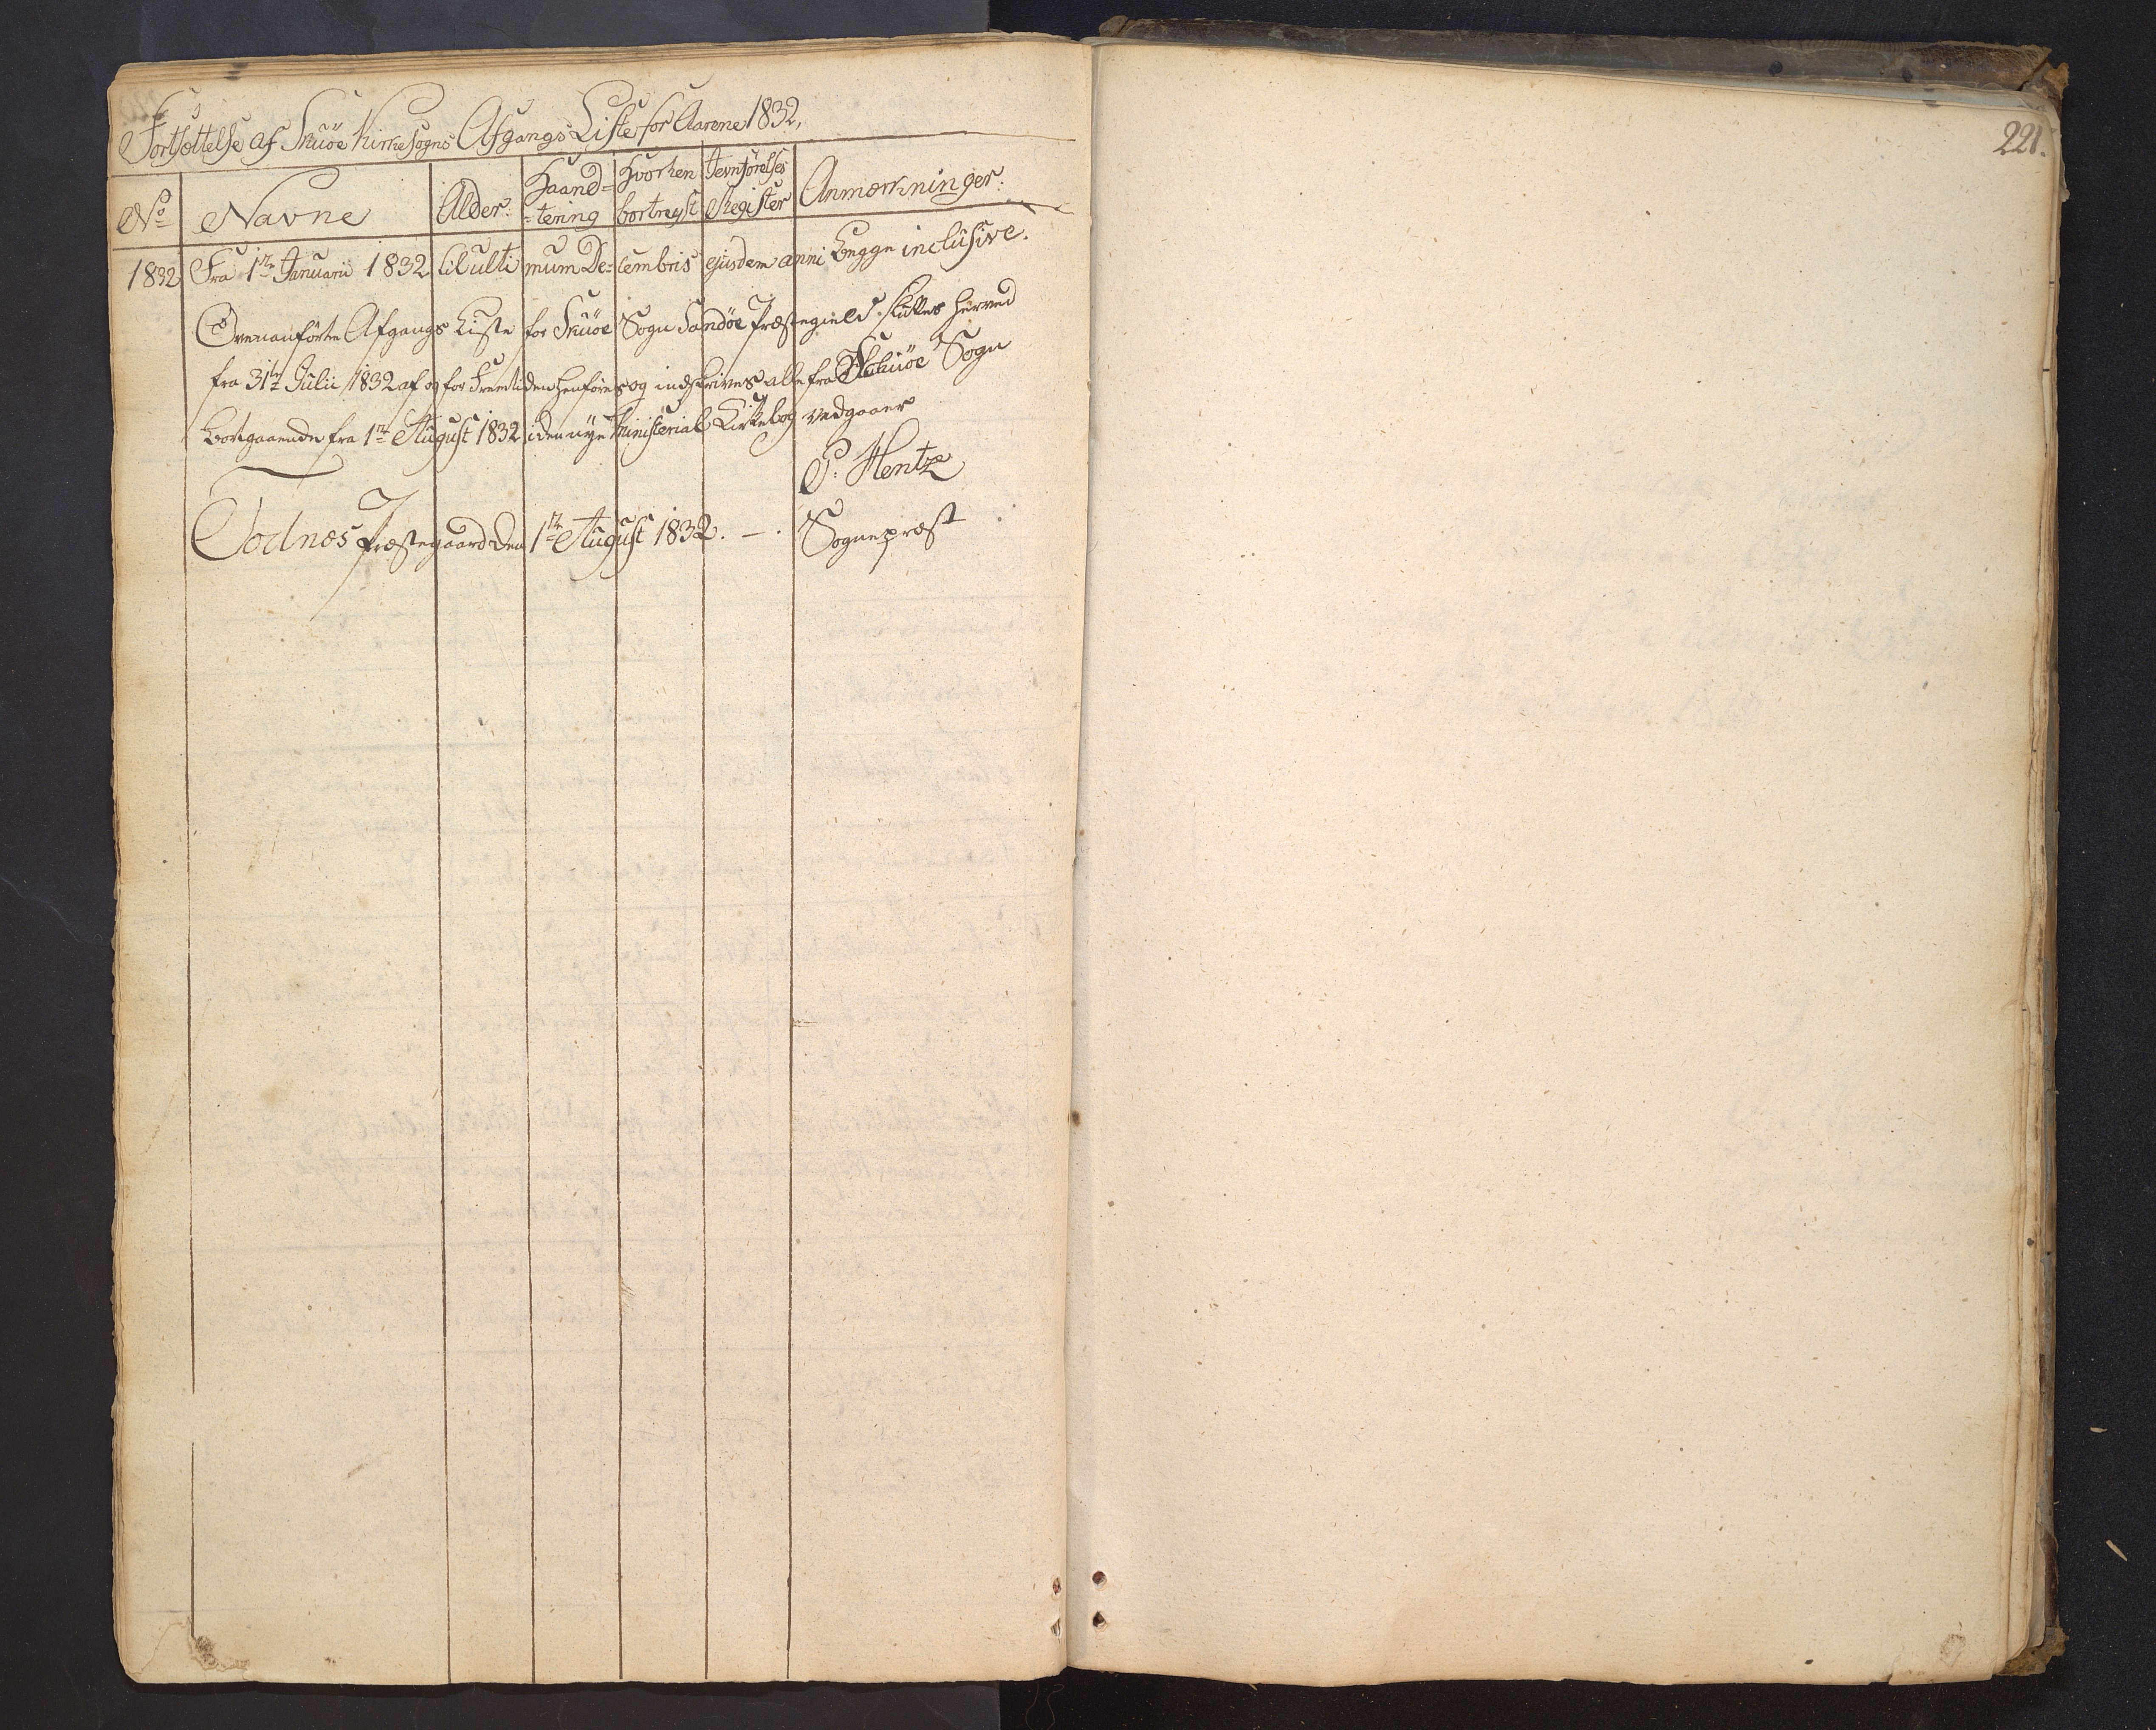 Fortsættelse af Skuöe Kirkesogns Afgangs Liste for Aarene 1832,
No Navne Alder. Haand=tering Hvorhen bortreyst Jevnförelses Register Anmærkninger.
1832 Fra 1te Januarii 1832 til ultimum De=cembris ejusdem anni begge inclusive.
Ovenanförte Afgangs Liste for Skuöe Sogn Sandöe Præstegield sluttes herved
fra 31te Julii 1832 af og for Fremtiden henföres og indskrives alle fra Skuöe Sogn
bortgaaende fra 1te August 1832 i den nye Ministerial Kirkebog vedgaaer
P. Hentze
Todnæs Præstegaard den 1te August 1832. — . Sognepræst
221.